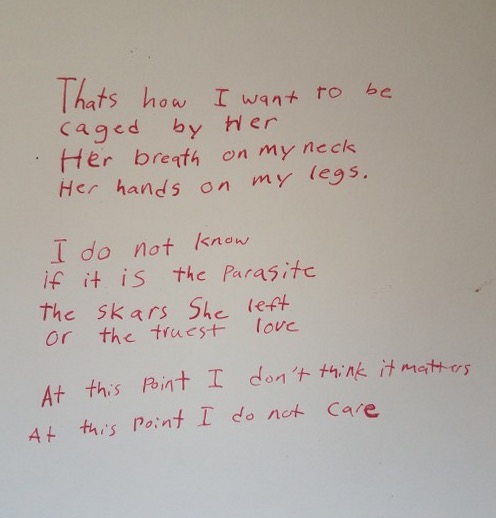 Thats how I want to be
caged by Her
Her breath on my neck
Her hands on my legs.
I do not know
if it is the Parasite
the skars She left
or the truest love
At this Point I don't think it matters
At this Point I do not care